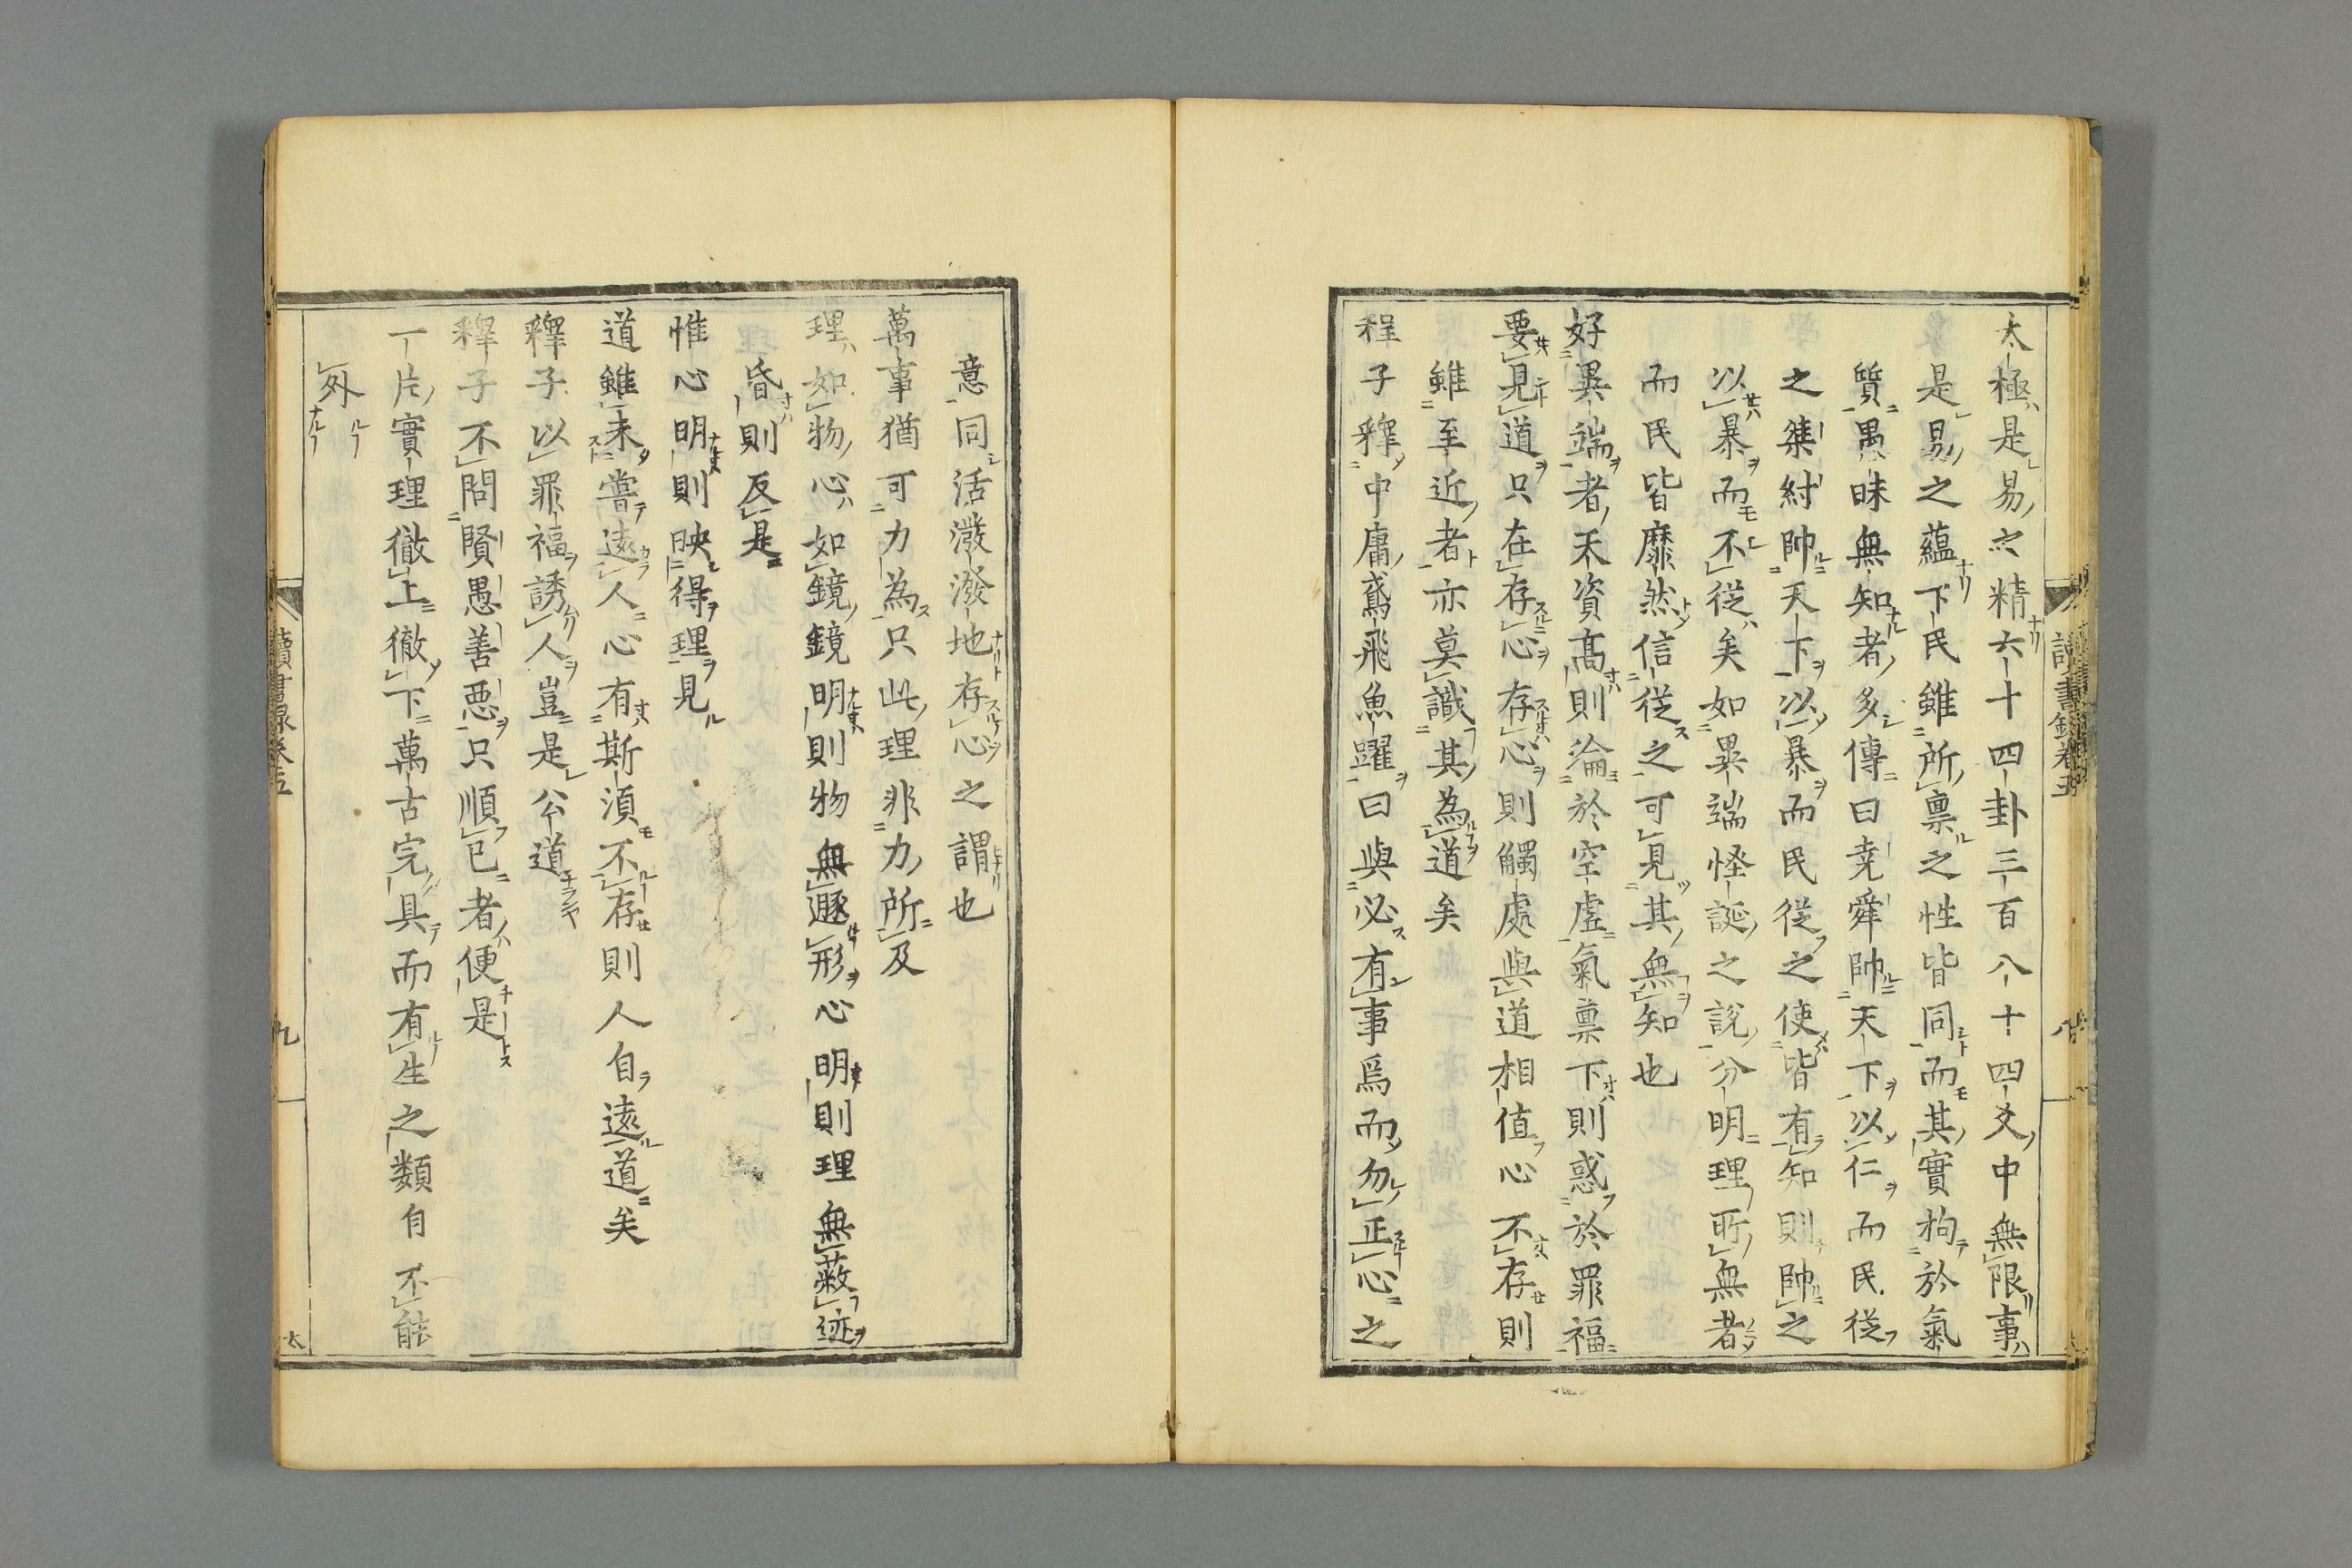 太極是易之精六十四卦三百八十四爻中無限事
是易之蘊下民雖所禀之性皆同而其實拘於氣
質愚昧無知者多傳曰尭舜帥天下以仁而民從
之桀紂帥天下以暴而民從之使皆有知則帥之
以暴而不從矣如異端怪誕之説分明理所無者
而民皆靡然信從之可見其無知也
好異端者天資髙則淪於空虚氣禀下則惑於罪福
要見道只在存心存心則觸處與道相值心不存則
雖至近者亦莫識其為道矣
程子釋中庸鳶飛魚躍曰與必有事焉而勿正心之
讀書録卷五
八
意同活潑潑地存心之謂也
萬事猶可力為只此理非力所及
理如物心如鏡鏡明則物無遯形心明則理無蔽迹
昏則反是
惟心明則映得理見
道雖未嘗遠人心有斯須不存則人自遠道矣
釋子以罪福誘人豈是公道
釋子不問賢愚善悪只順已者便是
一片實理徹上徹下萬古完具而有生之類自不能
外
讀書録卷五
九
太